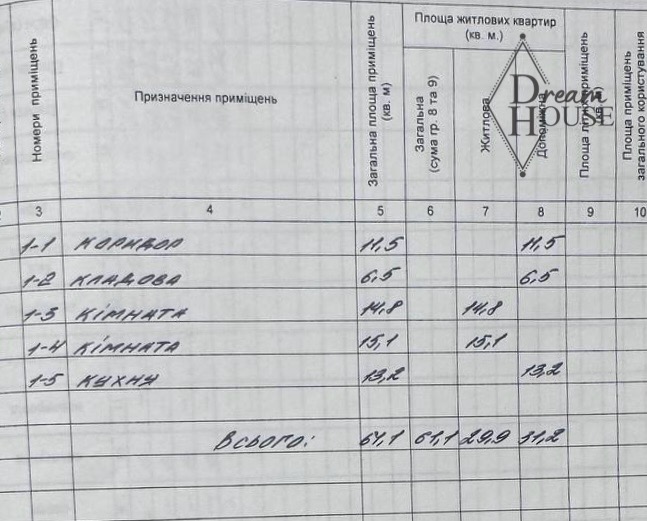 Номери приміщень
Призначення приміщень
Загальна площа приміщень (кв. м)
Площа житлових квартир
(кв. м.)
Загальна
(сума гр. 8 та 9)
Житлова
Допоміжна
Площа
приміщень
Площа приміщень
загального користування
Dream
House
3 4 5 6 7 8 9 10
1-1 коридор 11,5 11,5
1-2 кладова 6,5 6,5
1-3 кімната 14,8 14,8
1-4 кімната 15,1 15,1
1-5 кухну 13,2 13,2
Всього: 61,1 61,1 29,9 31,2